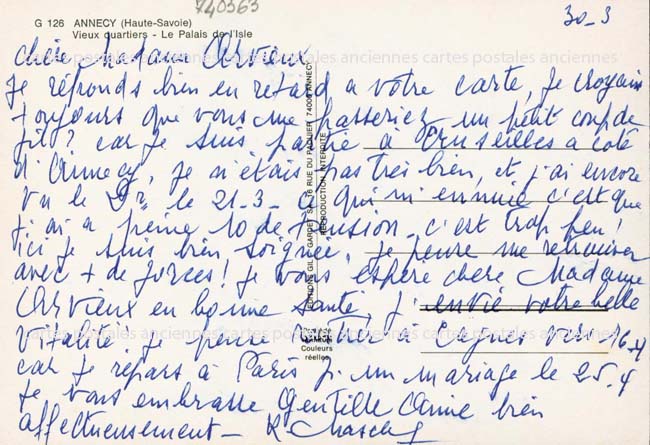 740363
G 126 ANNECY (Haute-Savoie)
Vieux quartiers - Le Palais de l'Isle
30-3
chère Madame Arvieux
cartes postales anciennes cartes postales anciennes cartes postales anciennes
Je réponds bien en retard a votre carte, Je croyais
toujours que vous me passeriez un petit coup de
fil? car Je suis partie à Cruseilles a coté
d'Annecy, Je n'étais pas tres bien, et j'ai encore
vu le Dr. le 21-3- ce qui m'ennuie c'est que
j'ai a peine 10 de tension - c'est trop peu!
ici Je suis bien soignée, Je pense me retrouver
avec + de forces! Je vous espère chère Madame
Arvieux en bonne santé, j'envie votre belle
cartes postales anciennes cartes postales anciennes cartes postales anciennes
vitalité, Je pense à Cagnes vers 16-4
car Je repars à Paris p. un mariage le 25-4
Je vous embrasse Gentille Amie bien
affectueusement - R.
EDITIONS GIL GARDET SA 16 RUE DU PAQUIER 74000 ANNECY
REPRODUCTION INTERDITE
Couleurs
réelles